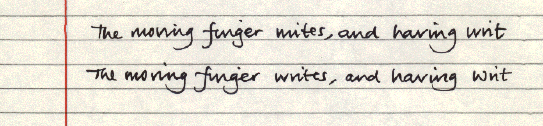 The moving finger writes, and having writ
The moving finger writes, and having writ